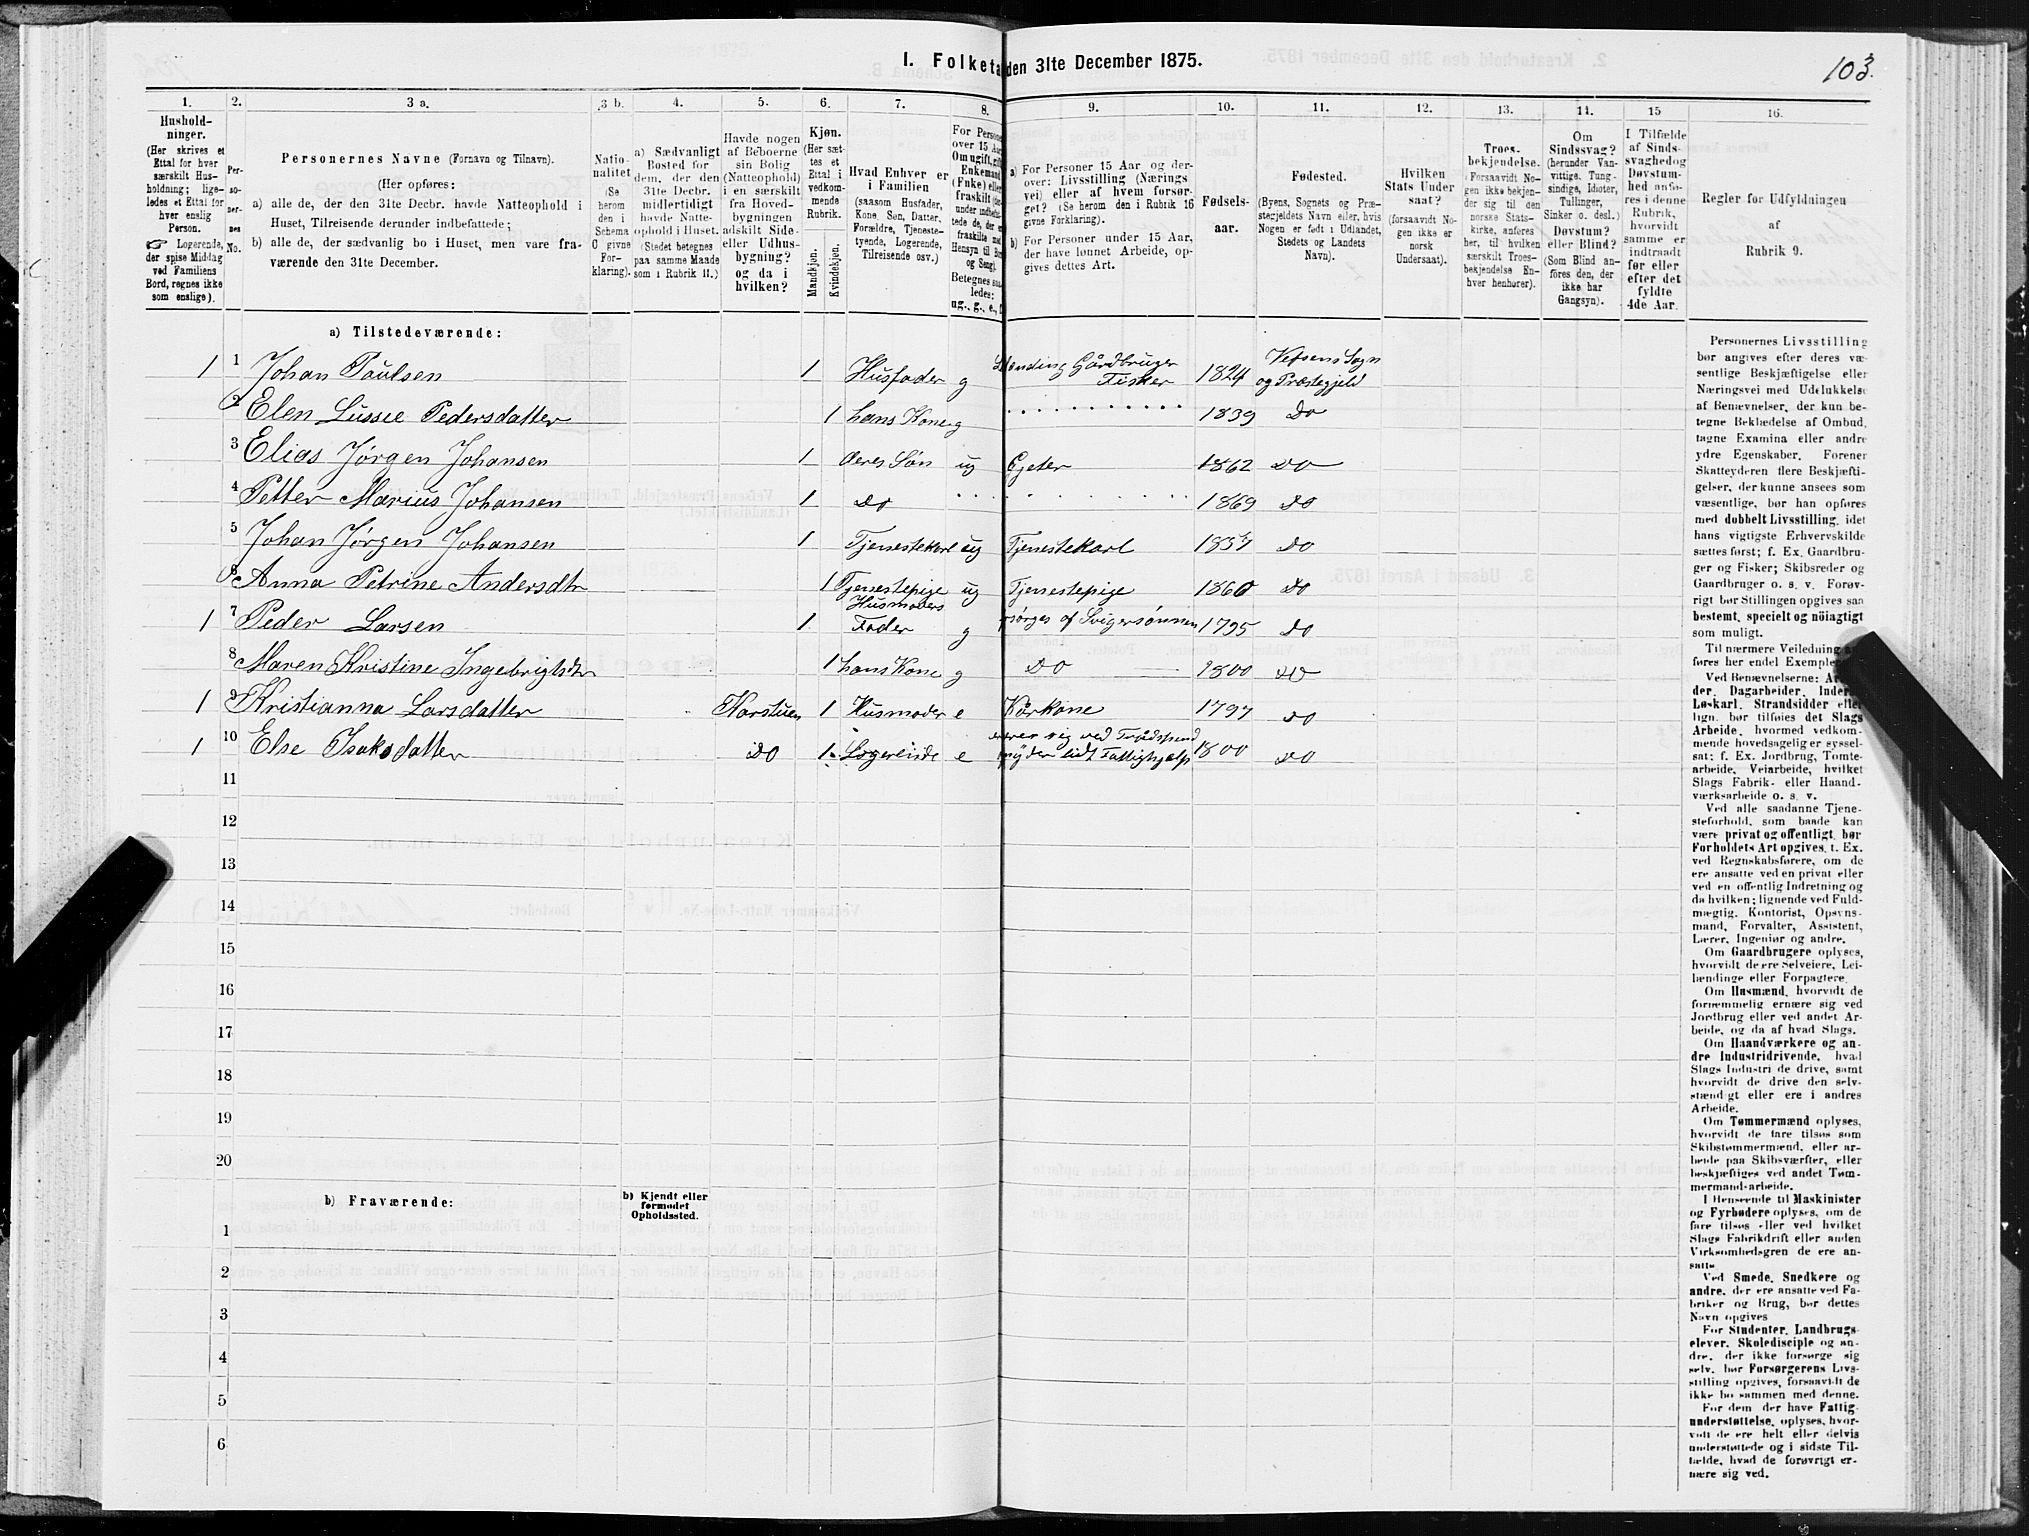 103.
I. Folketa den 31te December 1875.
1. 2. 3 a. 3 b. 4. 5. 6. 7. 8. 9. 10. 11. 12. 13. 14. 15 16.
Hushold-
ninger.
(Her skrives et
Ettal for hver
særskilt Hus-
holdning; lige-
ledes et Ettal for
hver enslig
Person.
☞ Logerende,
der spise Middag
ved Familiens
Bord, regnes ikke
som enslige).
Per-
so-
ner-
nes
No.
Personernes Navne (Fornavn og Tilnavn).
(Her opføres:
a) alle de, der den 31te Decbr. havde Natteophold i
Huset, Tilreisende derunder indbefattede;
b) alle de, der sædvanlig bo i Huset, men vare fra-
værende den 31te December.
Natio-
nalitet
(Se
herom
den i
Schema
C givne
For-
klaring).
a) Sædvanligt
Bosted for
dem, der den
31te Decbr.
midlertidigt
havde Natte-
ophold i Huset.
(Stedet betegnes
paa samme Maade
som i Rubrik 11.)
Havde nogen
af Beboerne
sin Bolig
(Natteophold)
i en særskilt
fra Hoved-
bygningen
adskilt Side-
eller Udhus-
bygning?
og da i
hvilken?
Kjøn.
(Her sæt-
tes et
Ettal i
vedkom-
mende
Rubrik.
Mandkjøn.
Kvindekjøn.
Hvad Enhver er
i Familien
(saasom Husfader,
Kone, Søn, Datter,
Forældre, Tjeneste-
tyende, Logerende,
Tilreisende osv.)
For Persone
over 15 Aar
Om ugift, gift
Enkemand
(Enke) elle
fraskilt
under indbefat-
tede de, der er
fraskilte med
Hensyn til Bo
og Seng).
Betegnes saa-
ledes:
ug., g., e.,
a) For Personer 15 Aar og der-
over: Livsstilling (Nærings-
vei) eller af hvem forsør-
get? (Se herom den i Rubrik 16
givne Forklaring).
b) For Personer under 15 Aar,
der have lønnet Arbeide, op-
gives dettes Art.
Fødsels-
aar.
Fødested.
(Byens, Sognets og Præ-
stegjeldets Navn eller, hvis
Nogen er født i Udlandet,
Stedets og Landets
Navn).
Hvilken
Stats Under-
saat?
(forsaavidt No-
gen ikke er
norsk
Undersaat).
Troes-
bekjendelse.
(Forsaavidt No-
gen ikke bekjen-
der sig til den
norske Stats-
kirke, anføres
her, til hvilken
særskilt Troes-
bekjendelse En-
hver henhører).
Om
Sindssvag?
(herunder Van-
vittige, Tung-
sindige, Idioter,
Tullinger,
Sinker o. desl.)
Døvstum?
eller Blind?
(Som Blind an-
føres den, der
ikke har
Gangsyn).
I Tilfælde
af Sinds-
svaghed og
Døvstum-
hed anfø-
res i denne
Rubrik,
hvorvidt
samme er
indtraadt
før eller
efter det
fyldte
4de Aar.
Regler for Udfyldningen
af
Rubrik 9.
a) Tilstedeværende:
1 1 Johan Paulsen 1 Husfader g Gårdbruger Fisker 1824 Vefsens Sogn og Præstegjeld
2 Elen Lussie Pedersdatter 1 hans Kone g 1839 Do
3 Elias Jørgen Johansen 1 deres Søn ug Gjeter 1862 Do
4 Petter Marius Johansen 1 Do 1869 Do
5 Johan Jørgen Johansen 1 Tjenestekarl ug Tjenestekarl 1857 Do
6 Anna Petrine Andersdtr 1 Tjenestepige ug Tjenestepige 1860 Do
1 7 Peder Larsen 1 Husmoders Fader g rsørges af Svigersønnen 1795 Do
8 Maren Kristine Ingebrigtsdtr 1 hans Kone g Do 1800 Do
1 9 Kristianna Larsdatter 1 Husmoder e Kårkone 1797 Do
1 10 Else Isaksdatter Do 1 Logerende e sig ved nyder lidt Fattighjælp 1800 Do
11
12
13
14
15
16
17
18
19
20
b) Fraværende:
b) Kjendt eller
formodet
Opholdssted.
1
2
3
4
5
6
Personernes Livsstilling
bør angives efter deres væ-
sentlige Beskjæftigelse eller
Næringsvei med Udelukkelse
af Benævnelser, der kun be-
tegne Beklædelse af Ombud,
tagne Examina eller andre
ydre Egenskaber. Forener
Skatteyderen flere Beskjæfti-
gelser, der kunne ansees som
væsentlige, bør han opføres
med dobbelt Livsstilling, idet
hans vigtigste Erhvervskilde
sættes først; f. Ex. Gaardbru-
ger og Fisker; Skibsreder og
Gaardbruger o. s. v. Forøv-
rigt bør Stillingen opgives saa
bestemt, specielt og nøiagtigt
som muligt.
Til nærmere Veiledning
føres her endel Exempler
Ved Benævnelserne:
der, Dagarbeider, Inder
Løskarl, Strandsidder eller
lign. bør tilføies det Slags
Arbeide, hvormed vedkom-
mende hovedsagelig er syssel-
sat; f. Ex. Jordbrug, Tomte-
arbeide, Veiarbeide, hvilket
Slags Fabrik- eller Haand-
værksarbeide o. s. v.
Ved alle saadanne Tjene-
steforhold, som baade kan
være privat og offentligt, bør
Forholdets Art opgives, t. Ex.
ved Regnskabsførere, om de
ere ansatte ved en privat eller
ved en offentlig Indretning og
da hvilken; lignende ved Fuld-
mægtig, Kontorist, Opsyns-
mand, Forvalter, Assistent,
Lærer, Ingeniør og andre.
Om Gaardbrugere oplyses,
hvorvidt de ere Selveiere, Lei-
lændinge eller Forpagtere.
Om Husmænd, hvorvidt de
fornemmelig ernære sig ved
Jordbrug eller ved andet Ar-
beide, og da af hvad Slags.
Om Haandværkere og an-
dre Industridrivende, hvad
Slags Industri de drive, samt
hvorvidt de drive den selv-
stændigt eller ere i andres
Arbeide.
Om Tømmermænd oplyses,
hvorvidt de fare tilsøs som
Skibstømmermænd, eller ar-
beide paa Skibsværfter, eller
beskjæftiges ved andet Tøm-
mermand-arbeide.
I Henseende til Maskinister
og Fyrbødere oplyses, om de
fare tilsøs eller ved hvilket
Slags Fabrikdrift eller anden
Virksomhedsgren de ere an-
satte
Ved Smede, Snedkere og
andre, der ere ansatte ved Fa-
briker og Brug, bør dettes
Navn opgives
For Studenter, Landbrugs-
elever, Skoledisciple og an-
dre, der ikke forsørge sig
selv, bør Forsørgerens Livs-
stilling opgives, forsaavidt de
ikke bo sammen med denne.
For dem, der have Fattig-
understøttelse, oplyses, hvor-
vidt de ere helt eller delvis
understøttede og i sidste Til-
fælde, hvad de forøvrigt er-
nære sig ved.